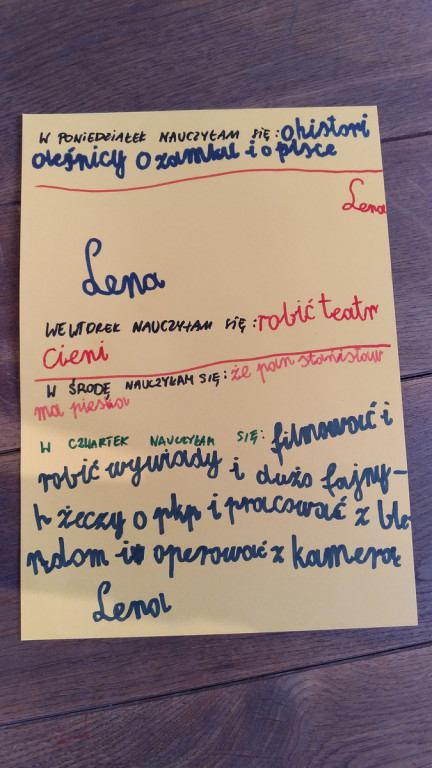 W PONIEDZIAŁEK NAUCZYŁAM SIĘ: ohistori
oleśnicy o zamku i o pisce
Lena
Lena
WE WTOREK NAUCZYŁAM SIĘ: robić teatr
cieni
W ŚRODĘ NAUCZYŁAM SIĘ: że pan stanisław
ma pieska
W CZWARTEK NAUCZYŁAM SIĘ: filmować i
robić wywiady i dużo fajny-
h żeczy o pkp i pracować z
operować z kamerą
Lena